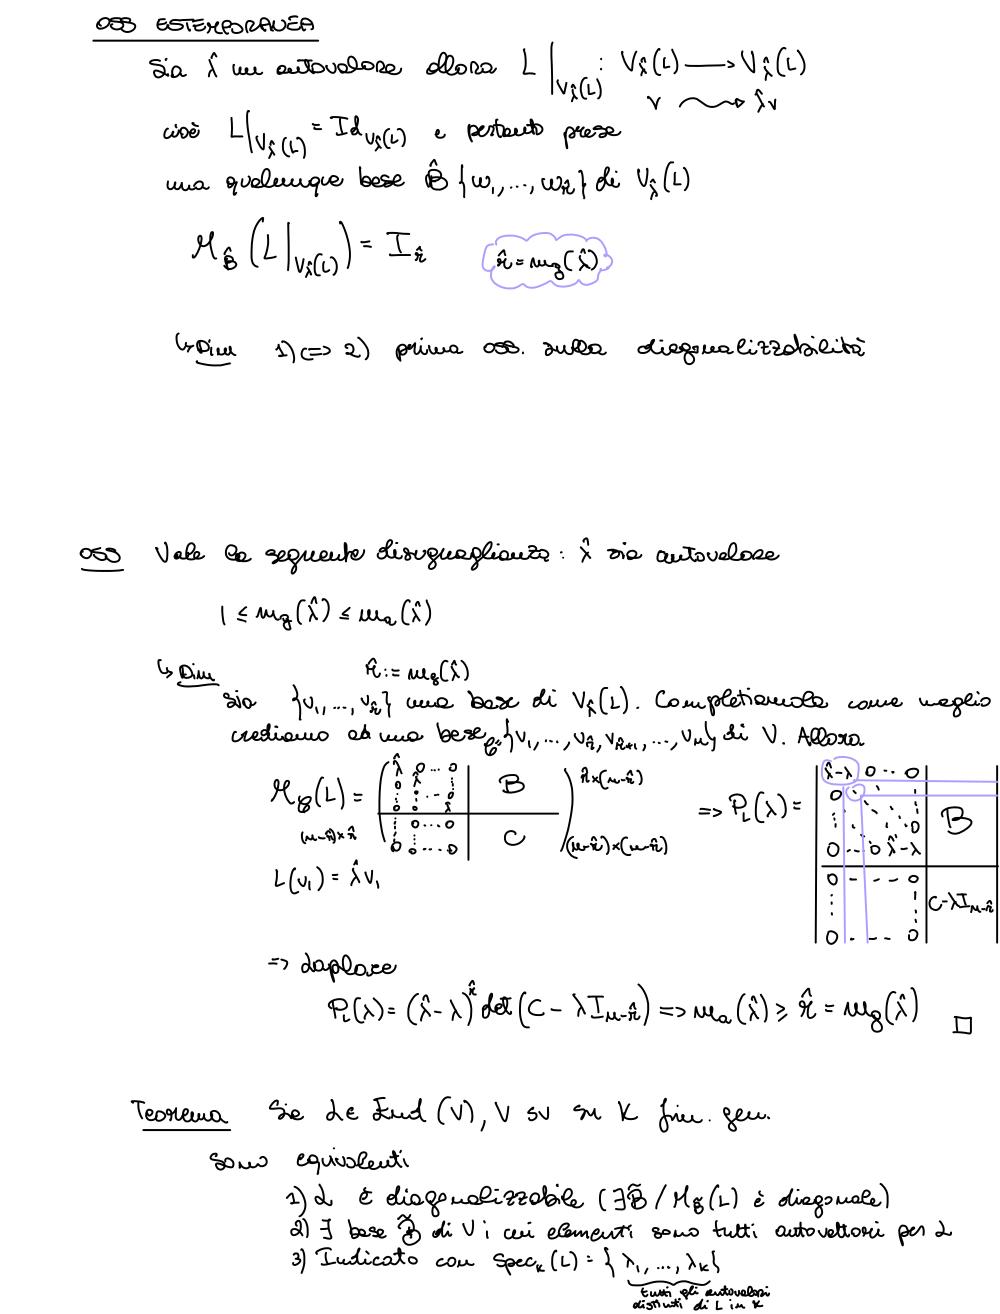 OSS ESTEMPORANEA
Sia λ̂ un autovalore allora L|_{V_λ̂(L)} : V_λ̂(L) ⟶ V_λ̂(L)
v ⇝ λ̂v
cioè L|_{V_λ̂(L)} = Id_{V_λ̂(L)} e pertanto presa
una qualunque base B̂ {w₁, ..., w_r̂} di V_λ̂(L)
M_B̂ (L|_{V_λ̂(L)}) = I_r̂ r̂ = mg(λ̂)
↳ Dim 1) <=> 2) prima oss. sulla diagonalizzabilità
OSS Vale la seguente disuguaglianza : λ̂ sia autovalore
1 ≤ mg(λ̂) ≤ ma(λ̂)
↳ Dim r̂ := mg(λ̂)
sia {v₁, ..., v_r̂} una base di V_λ̂(L). Completiamola come meglio
crediamo ad una base B = {v₁, ..., v_r̂, v_r̂+1, ..., v_n} di V. Allora
M_B(L) = ( λ̂ 0 ... 0 | B ) r̂×(n-r̂) => P_L(λ) = | λ̂-λ 0 ... 0 | B |
(n-r̂)×r̂ ( 0 ... 0 | C ) (n-r̂)×(n-r̂) 0 ... 0 λ̂-λ
L(v₁) = λ̂v₁ 0 - - - 0 | C-λI_{n-r̂}
0 - - - 0
=> Laplace
P_L(λ) = (λ̂-λ)^r̂ det(C - λI_{n-r̂}) => ma(λ̂) ≥ r̂ = mg(λ̂) □
Teorema Sia L ∈ End (V), V sv su K fin. gen.
sono equivalenti
1) L è diagonalizzabile (∃B̃ / M_B̃(L) è diagonale)
2) ∃ base B̃ di V i cui elementi sono tutti autovettori per L
3) Indicato con Spec_K(L) = {λ₁, ..., λ_k}
tutti gli autovalori
distinti di L in K